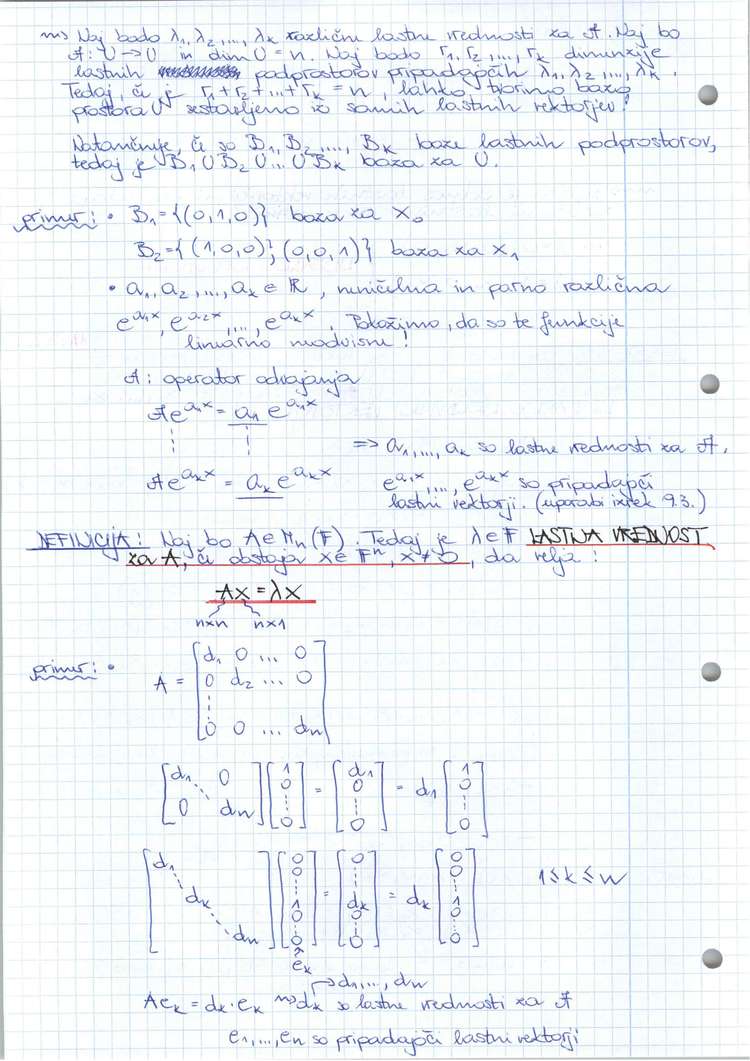 ⇝ Naj bodo λ₁, λ₂, ..., λₖ različne lastne vrednosti za 𝒜. Naj bo
𝒜: U → U in dim U = n. Naj bodo r₁, r₂, ..., rₖ dimenzije
lastnih podprostorov pripadajočih λ₁, λ₂, ..., λₖ.
Tedaj, če je r₁ + r₂ + ... + rₖ = n, lahko tvorimo bazo
prostora U sestavljeno iz samih lastnih vektorjev!
Natančneje, če so B₁, B₂, ..., Bₖ baze lastnih podprostorov,
tedaj je B₁ ∪ B₂ ∪ ... ∪ Bₖ baza za U.
primer: • B₁ = {(0,1,0)} baza za X₀
B₂ = {(1,0,0), (0,0,1)} baza za X₁
• a₁, a₂, ..., aₖ ∈ ℝ, neničelna in parno različna
e^{a₁x}, e^{a₂x}, ..., e^{aₖx}. Pokažimo, da so te funkcije
linearno neodvisne!
𝒜: operator odvajanja
𝒜e^{a₁x} = a₁ e^{a₁x}
⋮ ⋮
⇒ a₁, ..., aₖ so lastne vrednosti za 𝒜,
𝒜e^{aₖx} = aₖ e^{aₖx} e^{a₁x}, ..., e^{aₖx} so pripadajoči
lastni vektorji. (uporabi izrek 9.3.)
DEFINICIJA: Naj bo A ∈ Mₙ(𝔽). Tedaj je λ ∈ 𝔽 LASTNA VREDNOST
za A, če obstaja x ∈ 𝔽ⁿ, x ≠ 0, da velja:
Ax = λx
n×n n×1
primer: •
A = [d₁ 0 ... 0
0 d₂ ... 0
⋮
0 0 ... dₙ]
[d₁ 0 ⋱ 0 dₙ] [1 0 ⋮ 0] = [d₁ 0 ⋮ 0] = d₁ [1 0 ⋮ 0]
[d₁ ⋱ dₖ ⋱ dₙ] [0 0 ⋮ 1 0 ⋮ 0] = [0 0 ⋮ dₖ 0 ⋮ 0] = dₖ [0 0 ⋮ 1 0 ⋮ 0] 1 ≤ k ≤ n
eₖ
→ d₁, ..., dₙ
Aeₖ = dₖ · eₖ ⇝ dₖ so lastne vrednosti za 𝒜
e₁, ..., eₙ so pripadajoči lastni vektorji